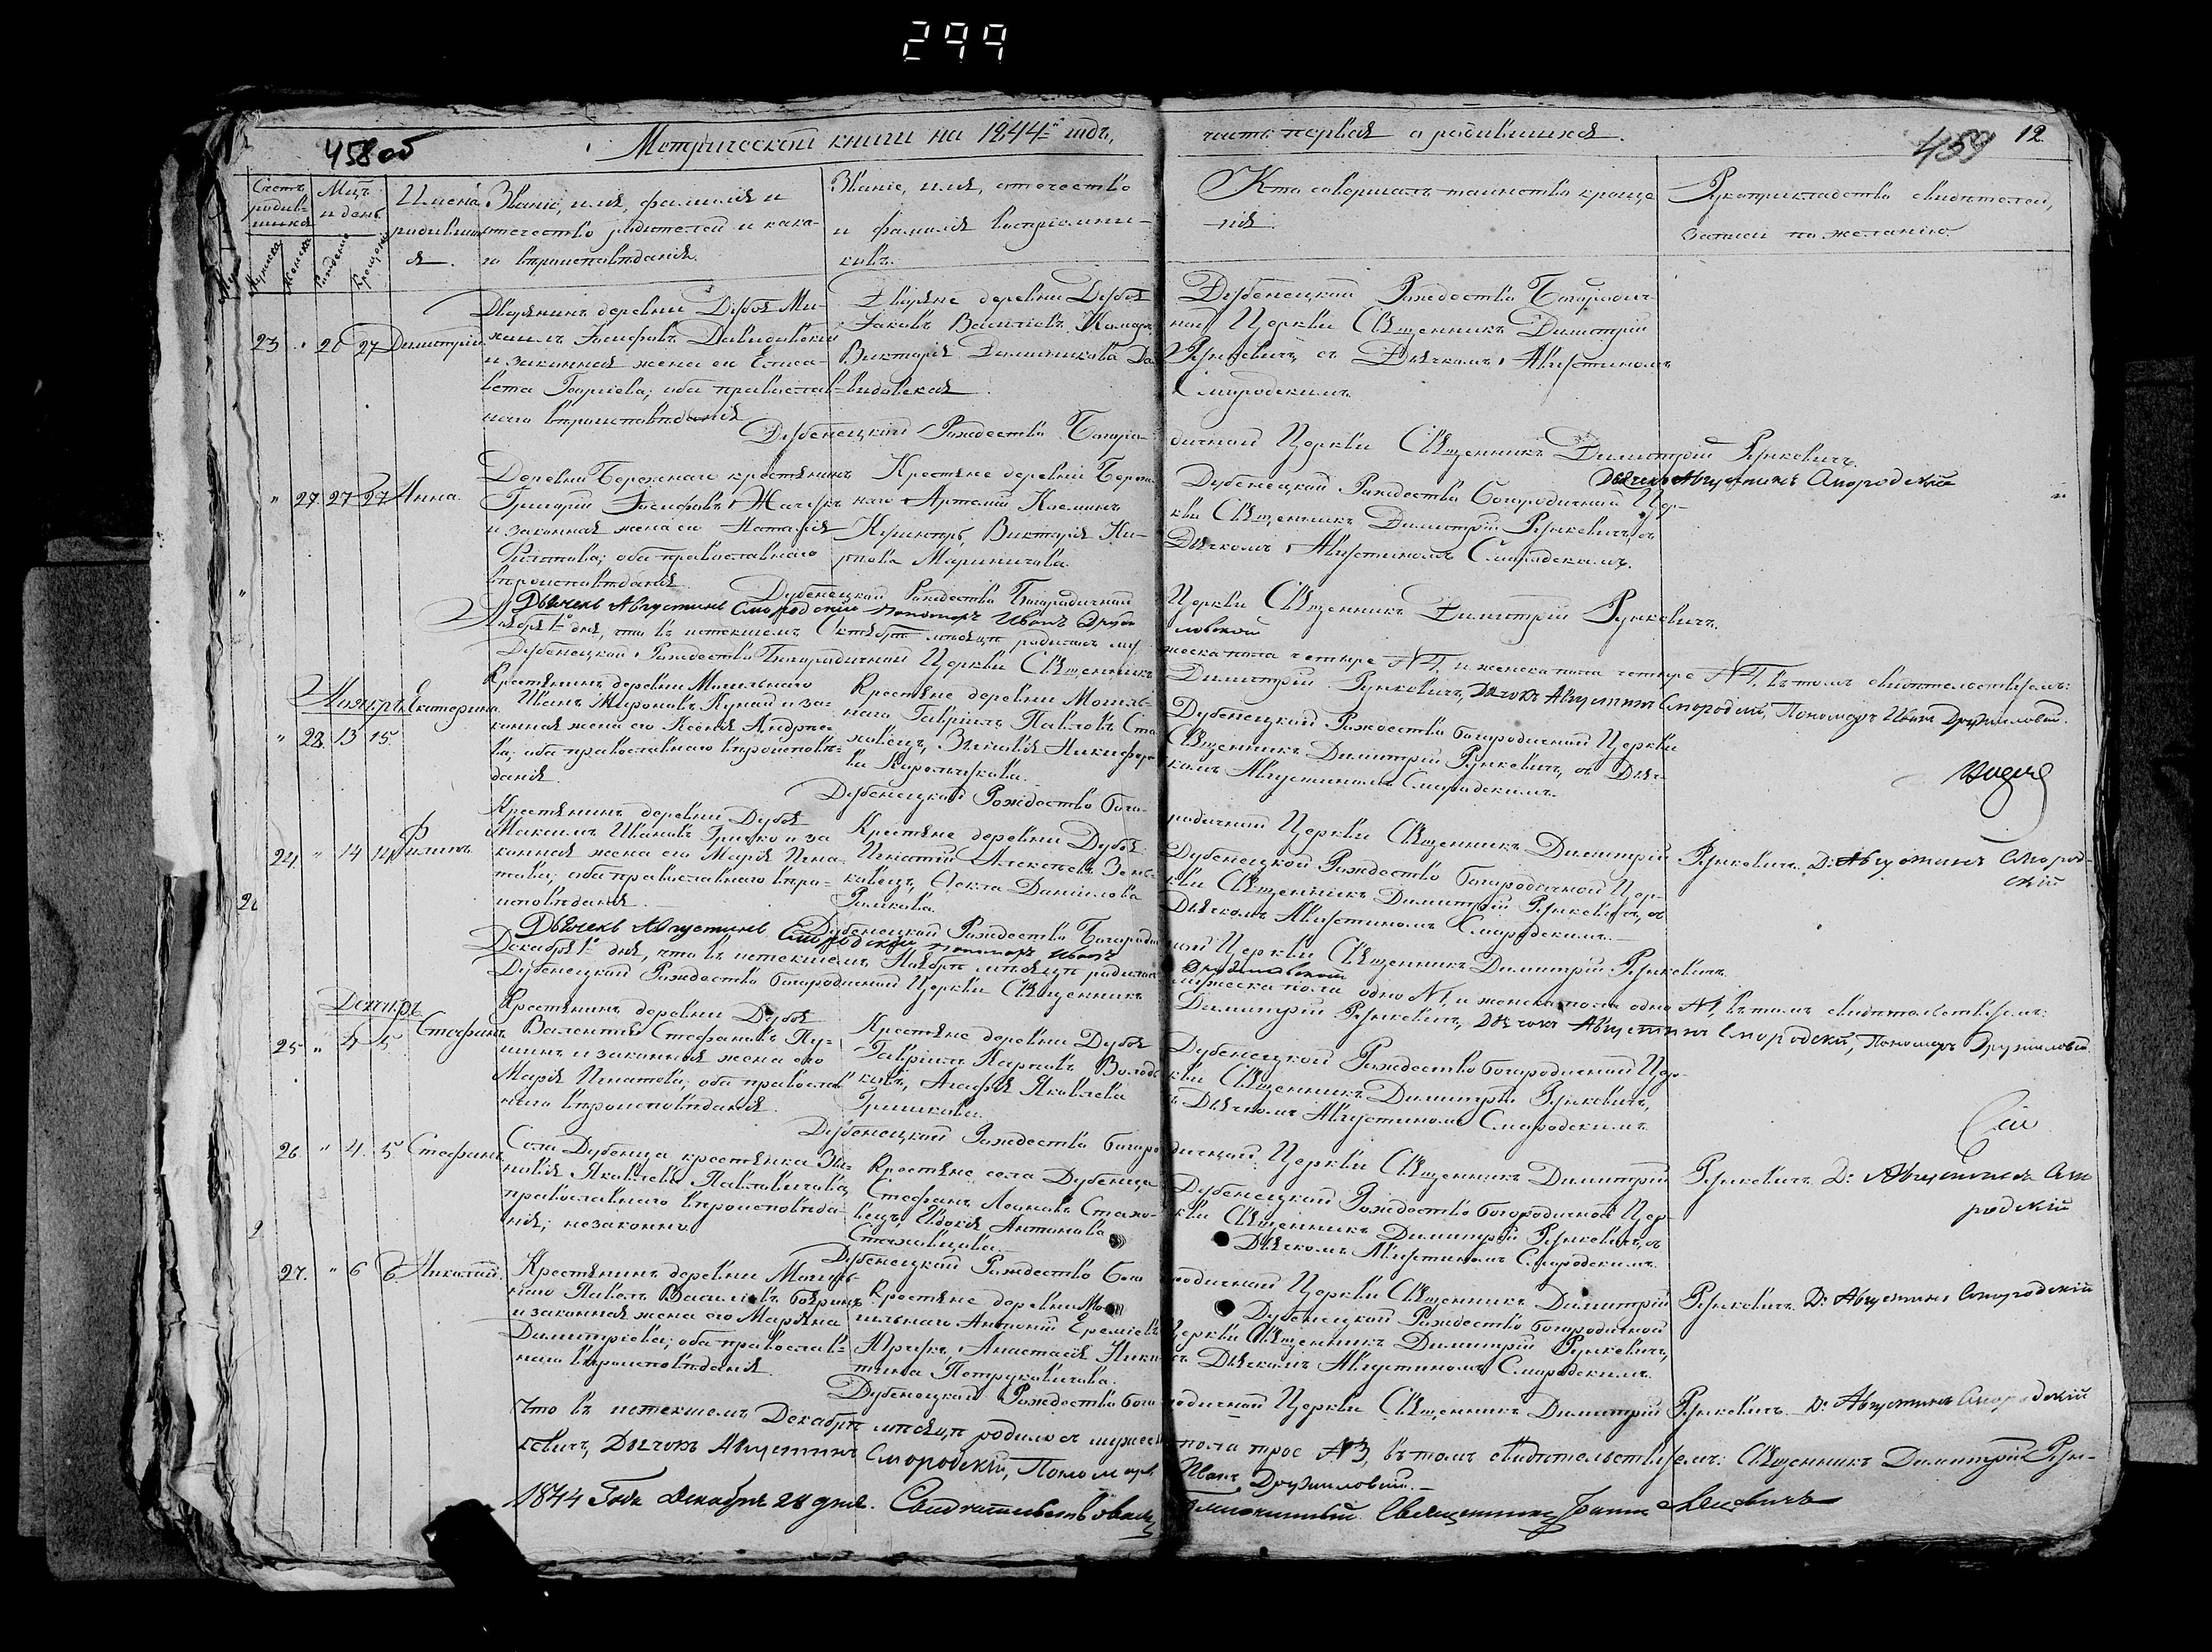 299
458 об
Метрической книги на 1844й годъ,
часть первая о родившихся.
459 12
Счетъ родив-
шихся
Мѣц. и день
Имена
родивших-
ся.
Званіе, имя, фамилія и
отечество родителей и кака-
го вѣроисповѣданія.
Званіе, имя, отечество
и фамилія воспріемни-
ковъ.
Кто совершалъ таинство креще
-нія
Рукоприкладство свидѣтелей,
записи по желанію.
Мужска
Женска
Рожденія
Крещенія
23 " 26 27 Димитрій
Дворянинъ деревни Дубоя Ми-
хаилъ Іосифовъ Давидовскій
и законная жена его Елиса-
вета Георгіева; оба православ-
наго вѣроисповѣданія
Дворяне деревни Дубоя
Іаковъ Василіевъ Комаръ,
Викторія Доминикова Да-
видовская.
Дубенецкой Рождество Богородич-
ной Церкви Священникъ Димитрій
Рункевичъ, съ Дьячкомъ Августиномъ
Смородскимъ.
Дубенецкой Рождество Богоро-
дичной Церкви Священникъ Димитрій Рункевичъ.
Дьячекъ Августинъ Смородскій
" 27 27 27 Анна.
Деревни Бережнаго крестьянинъ
Григорій Іосифовъ
и законная жена его Наталія
Филипова; оба православнаго
вѣроисповѣданія.
Крестьяне деревни Береж-
наго Артемій
Викторія Ки-
рпова Мариничова.
Дубенецкой Рождество Богородичной Цер-
кви Священникъ Димитрій Рункевичъ, съ
Дьячкомъ Августиномъ Смородскимъ.
Дубенецкой Рождество Богородичной
Церкви Священникъ Димитрій Рункевичъ.
Дьячекъ Августинъ Смородскій Пономарь Иванъ Дружи
ловской
Ноября 1го дня, что въ истекшемъ Октябрѣ мѣсяцѣ родилось му-
жеска пола четыре №4, и женска пола четыре №4, въ томъ свидѣтельствуемъ:
Дубенецкой Рождество Богородичной Церкви Священникъ
Димитрій Рункевичъ, Дьячокъ Августинъ Смородскій, Пономарь Иванъ Дружиловскій.
Ноябрь
" 28. 13 15. Екатерина
Крестьянинъ деревни Могильнаго
Иванъ Мироновъ Кунай и за-
конная жена его Ксенія Андрее-
ва; оба православнаго вѣроисповѣ-
данія.
Крестьяне деревни Могиль-
наго Гавріилъ Павловъ Ста-
ховецъ, Зиновія Никифоро-
ва Корольчукова.
Дубенецкой Рождество Богородичной Церкви
Священникъ Димитрій Рункевичъ, съ Дьяч-
комъ Августиномъ Смородскимъ.
Дубенецкой Рождество Бого-
родичной Церкви Священникъ Димитрій Рункевичъ. Д: Августинъ Смород-
скій
24 " 14 14 Филипъ
Крестьянинъ деревни Дубоя
Максимъ Ивановъ Гришко и за
конная жена его Марія Игна-
това; оба православнаго вѣро-
исповѣданія.
Крестьяне деревни Дубоя
Игнатій Алексѣевъ Зень-
ковецъ, Текла Даніилова
Ралкова.
Дубенецкой Рождество Богородичной Цер-
кви Священникъ Димитрій Рункевичъ, съ
Дьячкомъ Августиномъ Смородскимъ.
Дубенецкой Рождество Богородич-
ной Церкви Священникъ Димитрій Рункевичъ.
Дьячекъ Августинъ Смородскій Пономарь Иванъ
Дружиловской
Декабря 1го дня, что въ истекшемъ Ноябрѣ мѣсяцѣ родилось
мужеска пола одно №1, и женска пола одно №1, въ томъ свидѣтельствуемъ:
Дубенецкой Рождество Богородичной Церкви Священникъ
Димитрій Рункевичъ, Дьячокъ Августинъ Смородскій, Пономарь Дружиловскій.
Декабрь
25 " 4 5 Стефанъ
Крестьянинъ деревни Дубоя
Валентій Стефановъ Пу-
шикъ и законная жена его
Марія Игнатова; оба православ-
наго вѣроисповѣданія.
Крестьяне деревни Дубоя
Гавріилъ Карповъ Володь-
ковъ, Агафія Яковлева
Гришкова.
Дубенецкой Рождество Богородичной Цер-
кви Священникъ Димитрій Рункевичъ,
съ Дьячкомъ Августиномъ Смородскимъ
Дубенецкой Рождество Богоро-
дичной Церкви Священникъ Димитрій Рункевичъ. Д: Августинъ Смо
родскій
26 " 4. 5. Стефанъ
Села Дубенца крестьянка Зи-
новія Яковлева Павловичова,
православнаго вѣроисповѣда-
нія; незаконно
Крестьяне села Дубенца
Стефанъ Леоновъ Стахо-
вецъ, Евдокія Антонова
Стаховцова.
Дубенецкой Рождество Богородичной Цер-
кви Священникъ Димитрій Рункевичъ, съ
Дьячкомъ Августиномъ Смородскимъ.
Дубенецкой Рождество Бого
родичной Церкви Священникъ Димитрій Рункевичъ. Д: Августинъ Смородскій
27. " 6 6 Николай.
Крестьянинъ деревни Могиль-
наго Павелъ Василіевъ Бояринъ
и законная жена его Маріяна
Димитріева; оба православ-
наго вѣроисповѣданія.
Крестьяне деревни Мо-
гильнаго Антоній Ереміевъ
Юрчикъ, Анастасія Ники-
тина Петруковичова.
Дубенецкой Рождество Богородичной
Церкви Священникъ Димитрій Рункевичъ,
съ Дьячкомъ Августиномъ Смородскимъ.
Дубенецкой Рождество Бого-
родичной Церкви Священникъ Димитрій Рункевичъ. Д: Августинъ Смородскій
Что въ истекшемъ Декабрѣ мѣсяцѣ родилось мужеска
пола трое №3, въ томъ свидѣтельствуемъ: Священникъ Димитрій Рун-
кевичъ, Дьячокъ Августинъ Смородскій, Пономарь
Иванъ Дружиловскій.
1844 Года Декабря 28 дня. Свидѣтельствовалъ
Благочинный Священникъ